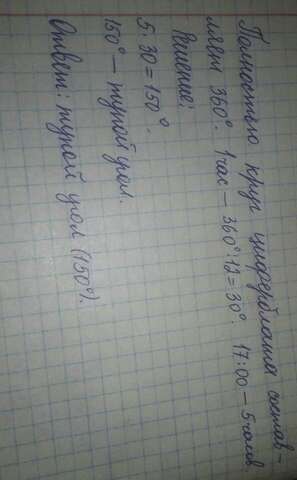 Полностью круг циферблата состав-
ляет 360°. 1 час – 360°:12=30°. 17:00 – 5 часов
Решение:
5·30=150°.
150° – тупой угол.
Ответ: тупой угол (150°).